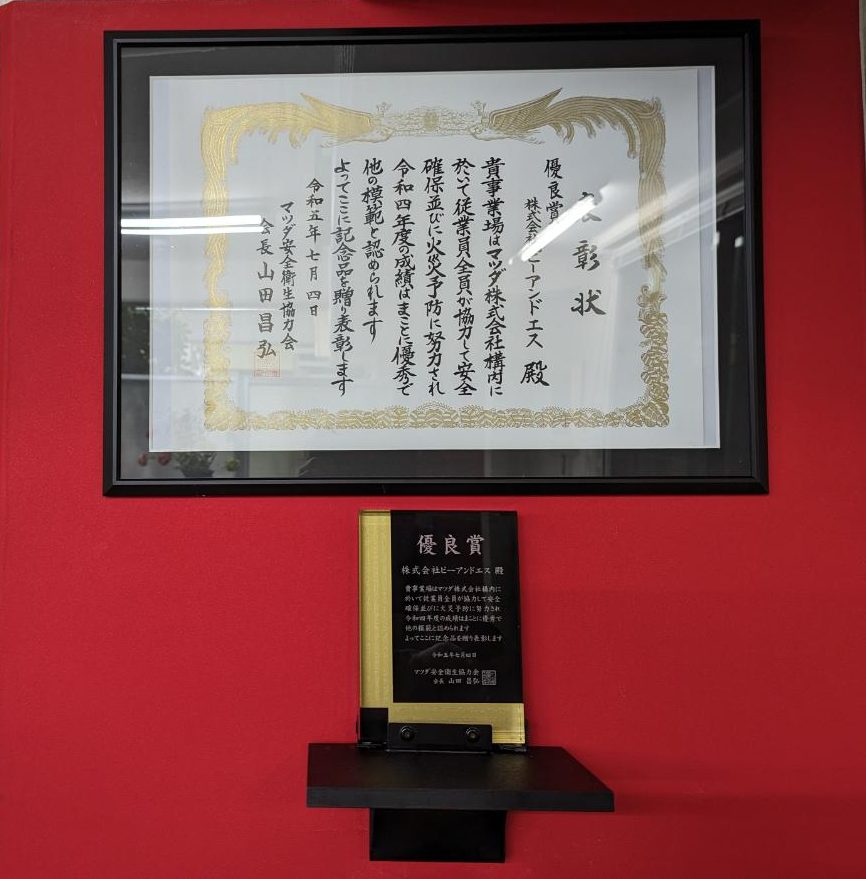 表彰状
優良賞
株式会社ビーアンドエス 殿
貴事業場はマツダ株式会社構内に
於いて従業員全員が協力して安全
確保並びに火災予防に努力され
令和四年度の成績はまことに優秀で
他の模範と認められます
よってここに記念品を贈り表彰します
令和五年七月四日
マツダ安全衛生協力会
会長 山田昌弘
優良賞
株式会社ビーアンドエス 殿
貴事業場はマツダ株式会社構内に
於いて従業員全員が協力して安全
確保並びに火災予防に努力され
令和四年度の成績はまことに優秀で
他の模範と認められます
よってここに記念品を贈り表彰します
令和五年七月四日
マツダ安全衛生協力会
会長 山田 昌弘